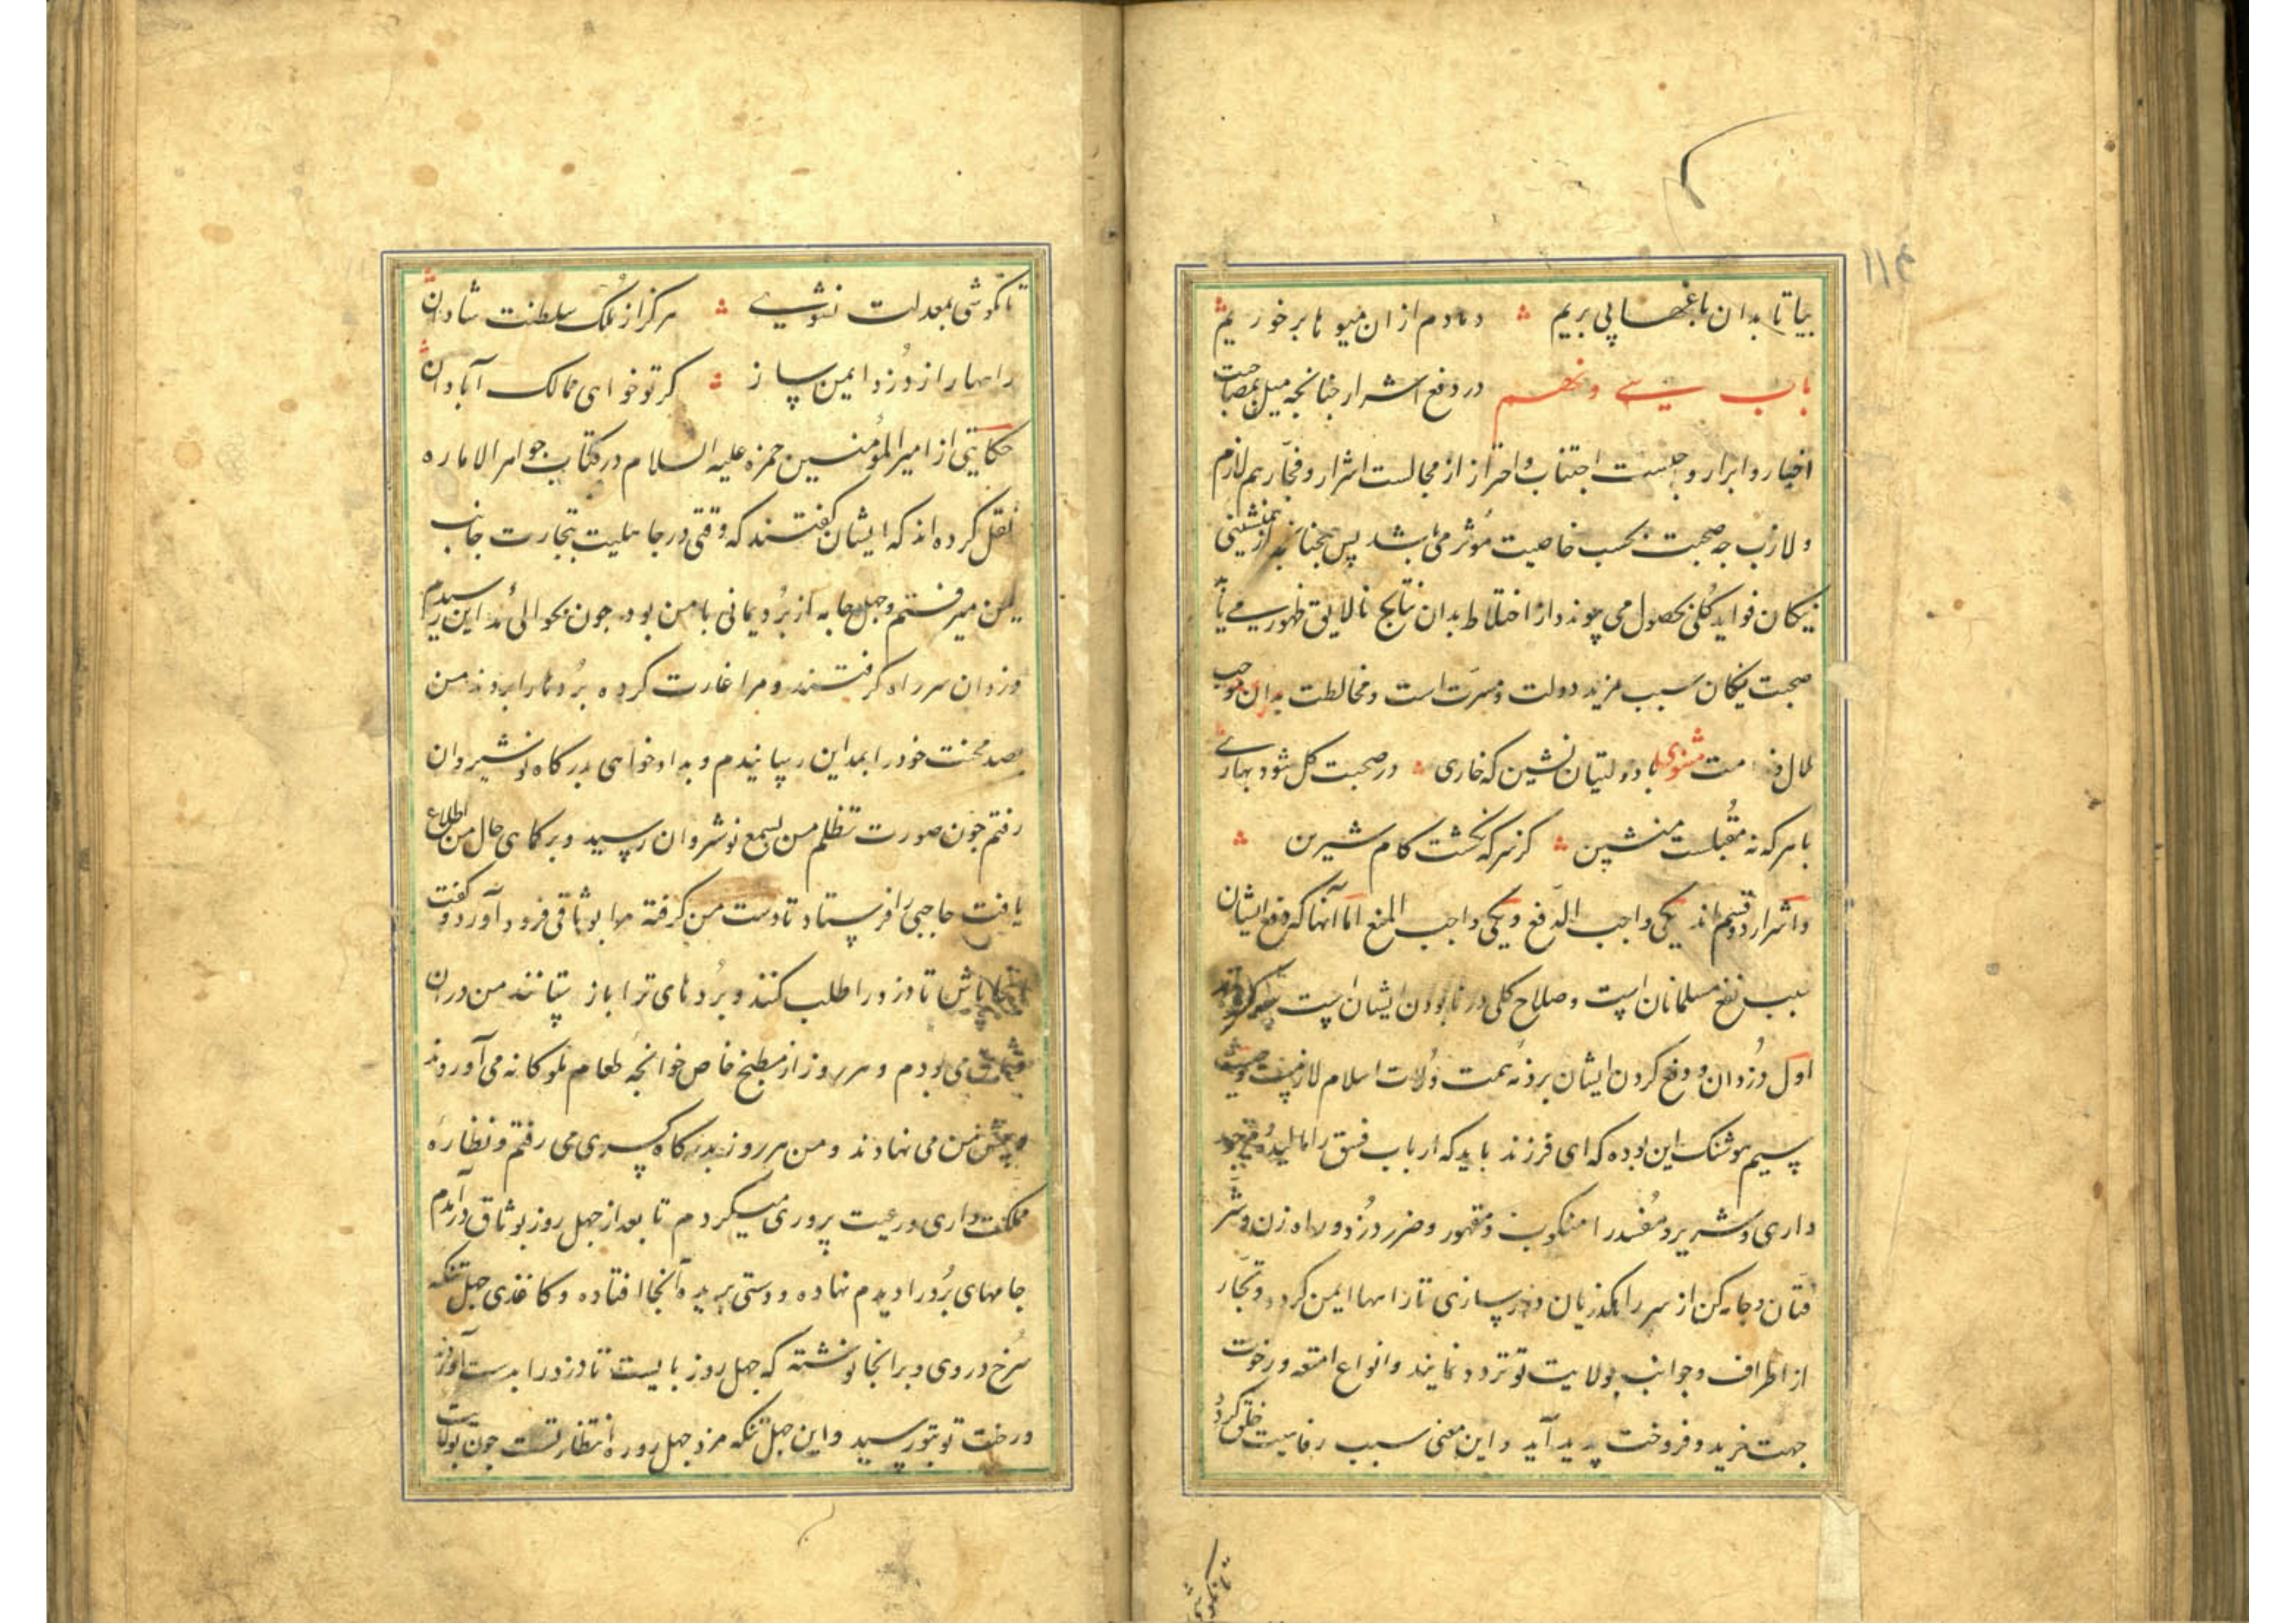 بیا تا بدان باغها پی بریم دمادم ازان میوها برخوریم
باب سی و نهم در دفع اشرار چنانچه میل بمصاحبت
اخیار و ابرار واجبست اجتناب و احتراز از مجالست اشرار و فجار هم لازم
و لازب چه صحبت بحسب خاصیت مؤثر می باشد پس همچنانکه از همنشینی
نیکان فواید کلی بحصول می پیوندد از اختلاط بدان نتایج نالایق ظهور می یابد
صحبت نیکان سبب مزید دولت و مسرت است و مخالطت بدان موجب
ملال و ندامت مثنوی با دولتیان نشین که خاری در صحبت گل شود بهاری
با هرکه نه مقبلست منشین کز سرکه نگشت کام شیرین
و اشرار دو قسم اند یکی واجب الدفع و یکی واجب المنع اما آنها که دفع ایشان
سبب نفع مسلمانان است و صلاح کلی در نابودن ایشان است
اول دزدان و دفع کردن ایشان بر ذمه همت ولات اسلام لازمست و وصیت
هوشنک این بوده که ای فرزند باید که ارباب فسق را مالیده
داری و شریر و مفسد را منکوب و مقهور و ضرر دزد و راه زن و شر
فتان و جامه کن از سر راهگذریان دور سازی تا راهها ایمن گردد و تجار
از اطراف و جوانب بولایت تو تردد نمایند و انواع امتعه و رخوت
جهت خرید و فروخت پدید آید و این معنی سبب رفاهیت خلق گردد
تا نکوشی بمعدلت نشوی هرگز از ملک و سلطنت شادان
راهها را ز دزد ایمن ساز گر تو خواهی ممالک آبادان
حکایتی از امیر المؤمنین حمزه علیه السلام در کتاب جواهر الاماره
نقل کرده اند که ایشان گفتند که وقتی در جاهلیت بتجارت جانب
یمن میرفتم و چهل جامه از برد یمانی با من بود چون بحوالی مداین رسیدم
دزدان سر راه گرفتند و مرا غارت کرده بردها را بردند من
بصد محنت خود را بمداین رسانیدم و بدادخواهی بدرگاه نوشیروان
رفتم چون صورت تظلم من بسمع نوشروان رسید و بر کماهی حال من اطلاع
یافت حاجبی را فرستاد تا دست من گرفته مرا بوثاقی فرود آورد و گفت
اینجا باش تا دزد را طلب کنند و بردهای ترا باز ستانند من دران
وثاق می بودم و هر روز از مطبخ خاص خوانچه طعام ملوکانه می آوردند
و پیش من می نهادند و من هر روز بدرگاه کسری می رفتم و نظاره
مملکت داری و رعیت پروری میکردم تا بعد از چهل روز بوثاق درآمدم
جامهای برد را دیدم نهاده و دستی بریده آنجا افتاده و کاغذی چهل تنکه
سرخ در وی و بر انجا نوشته که چهل روز بایست تا دزد را بدست آوردند
و رخت تو بتو رسید و این چهل تنکه مزد چهل روزه انتظار تست چون بولایت